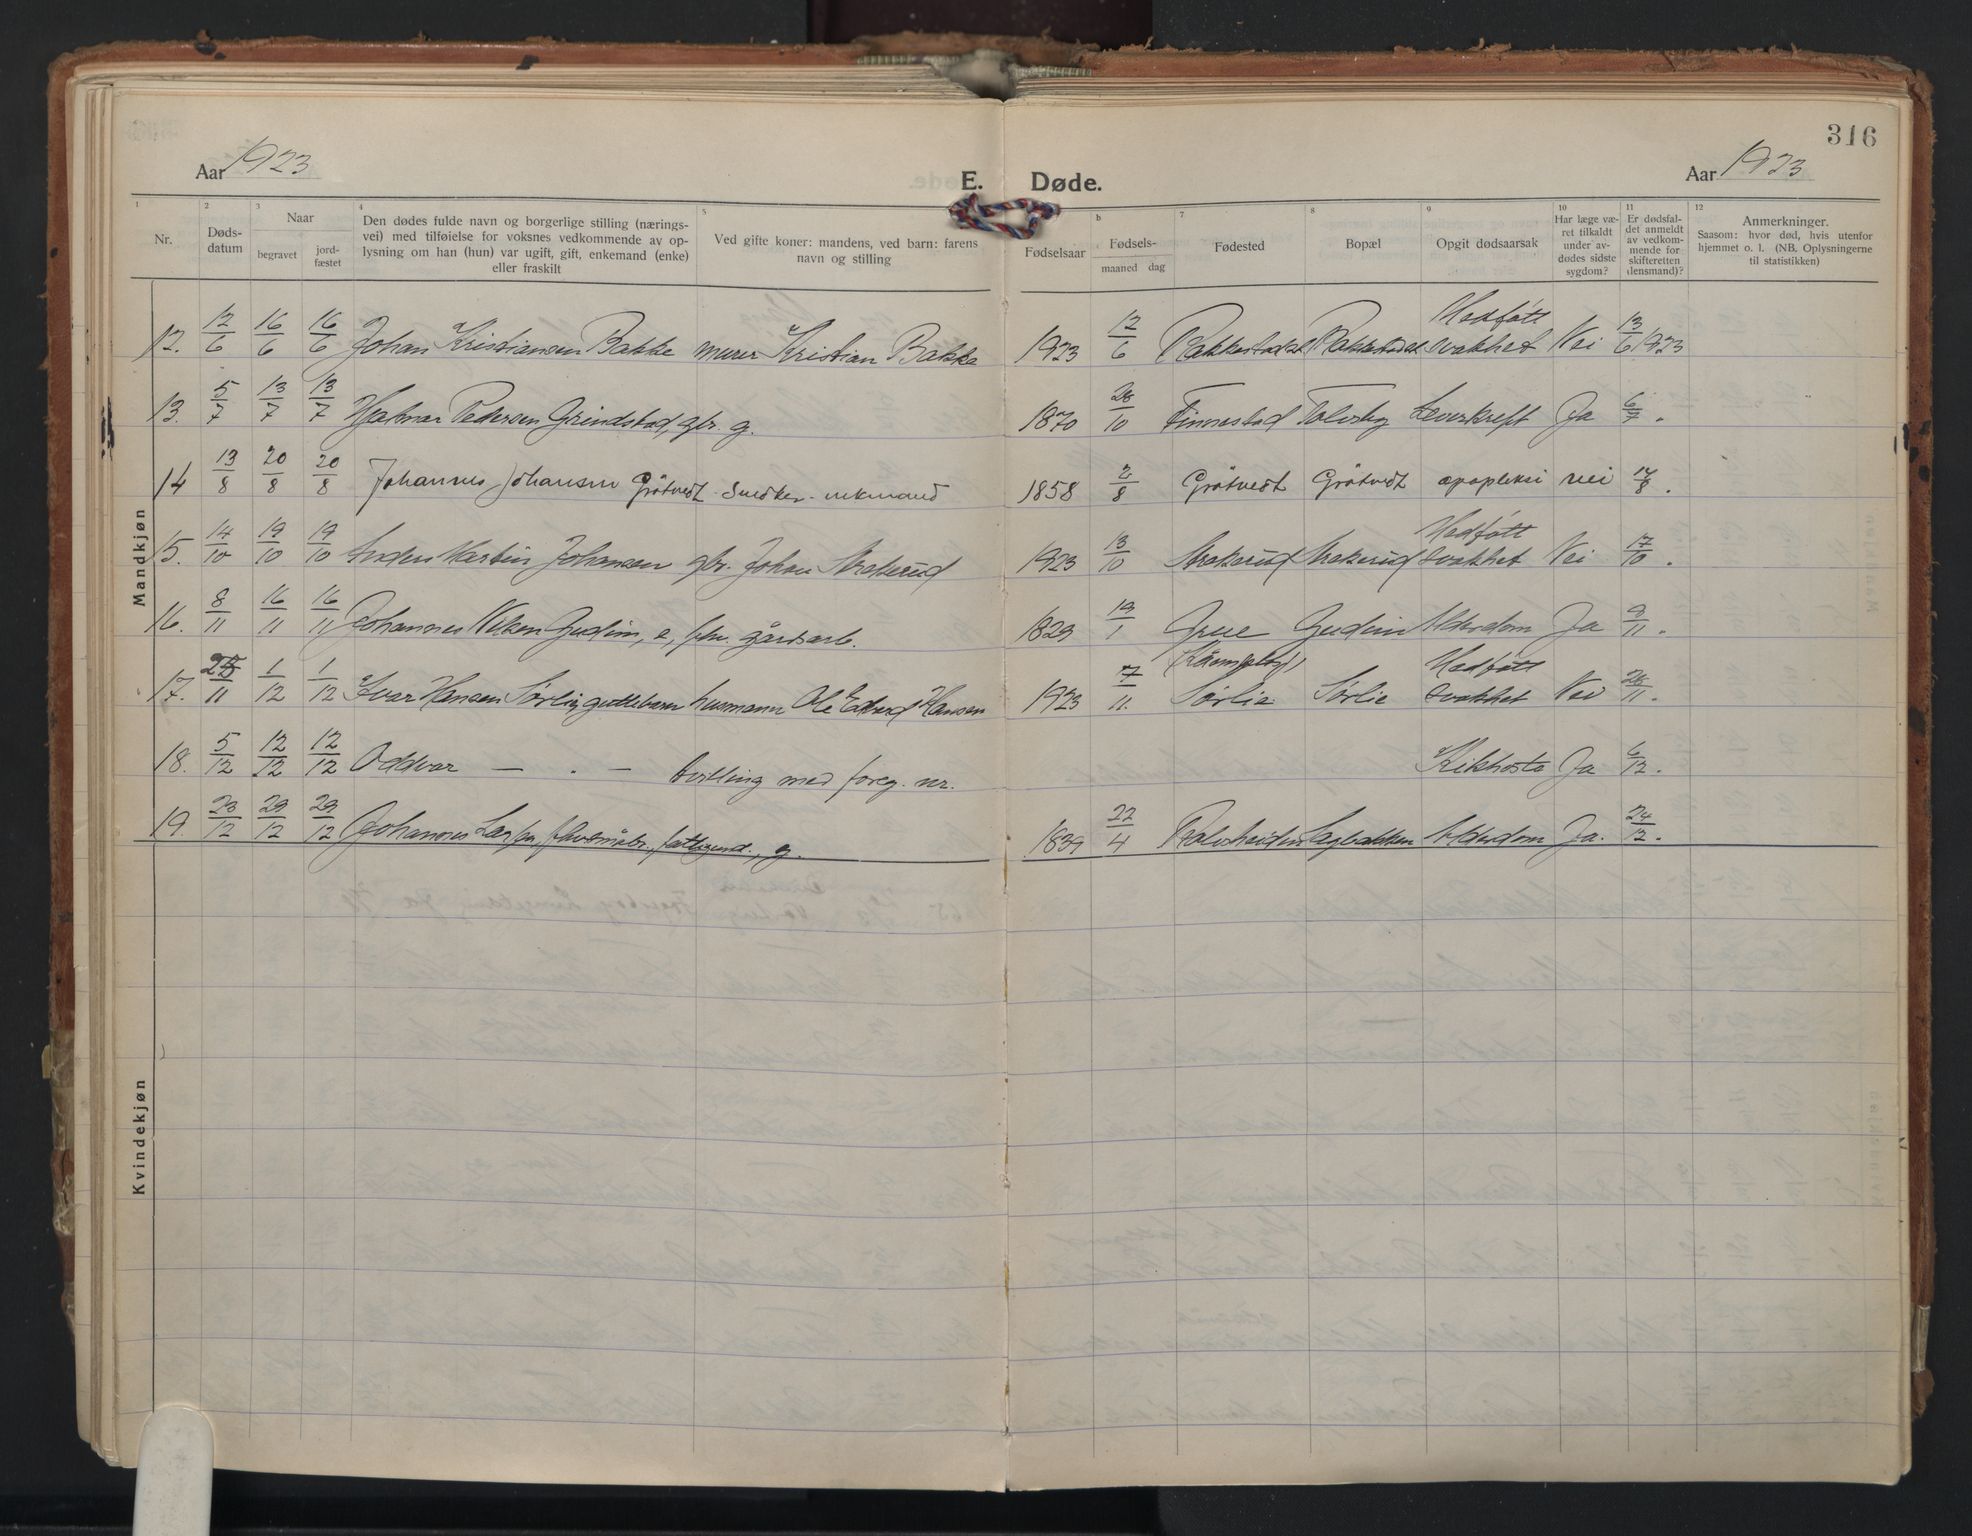 316
Aar 1923
E. Døde.
Aar 1923
1 2 3 4 5 b 7 8 9 10 11 12
Nr.
Døds-
datum
Naar
begravet
jord-
fæstet
Den dødes fulde navn og borgerlige stilling (nærings-
vei) med tilføielse for voksnes vedkommende av op-
lysning om han (hun) var ugift, gift, enkemand (enke)
eller fraskilt
Ved gifte koner: mandens, ved barn: farens
navn og stilling
Fødselsaar
Fødsels-
maaned dag
Fødested
Bopæl
Opgit dødsaarsak
Har læge væ-
ret tilkaldt
under av-
dødes sidste
sygdom?
Er dødsfal-
det anmeldt
av vedkom-
mende for
skifteretten
(lensmand)?
Anmerkninger.
Saasom: hvor død, hvis utenfor
hjemmet o. l. (NB. Oplysningerne
til statistikken)
Mandkjøn
12. 12/6 16/6 16/6 Johan Kristiansen Bakke murer Kristian Bakke 1923 12/6 Rakkestad Rakkestad Medfött svakhet Nei 13/6 1923
13. 5/7 13/7 13/7 Hjalmar Pedersen Grindstad, gbr. g. 1870 28/10 Finnestad Tolvsby Leverkreft Ja 6/7.
14 13/8 20/8 20/8 Johannes Johansen Grötvedt Snedker - enkmand 1858 2/8 Grötvedt Grötvedt apopleksi nei 14/8.
15. 14/10 19/10 19/10 Anders Martin Johansen gbr. Johan Strakerud 1923 13/10 Strakerud Strakerud Medfött svakhet Nei 17/10.
16. 8/11 16/11 16/11 Johannes Gudim, e, fhv. gårdsarb. 1829 19/1 Grue Gudim Alderdom Ja 9/11.
17. 25/11 1/12 1/12 Ivar Hansen Sørlie, guttebarn husmann Ole Edvard Hansen 1923 7/11. Sørlie Sørlie Medfött svakhet Nei 28/11.
18. 5/12 12/12 12/12 Oddvar — . — tvilling med foreg. nr. Kikhoste Ja 6/12.
19. 23/12 29/12 29/12 Johannes g. 1839 22/4 Alderdom Ja. 24/12.
Kvindekjøn